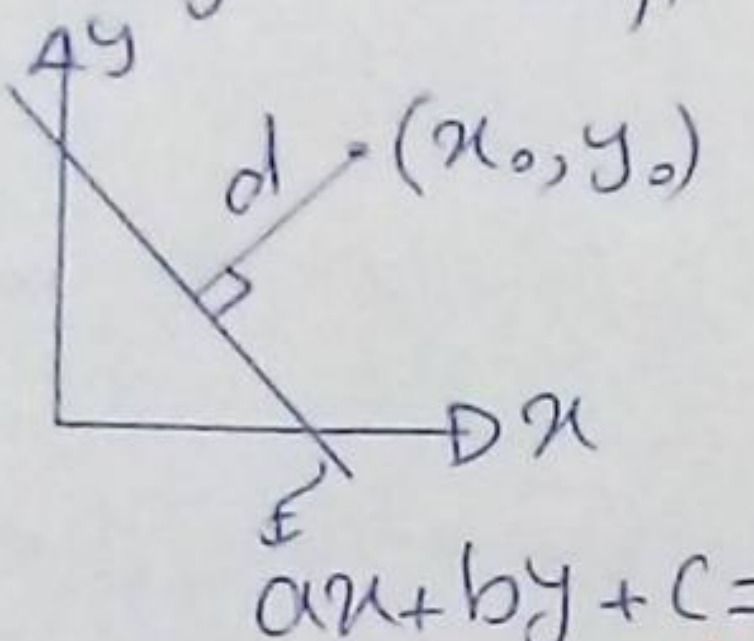 y
d (x₀, y₀)
x
ax + by + c =